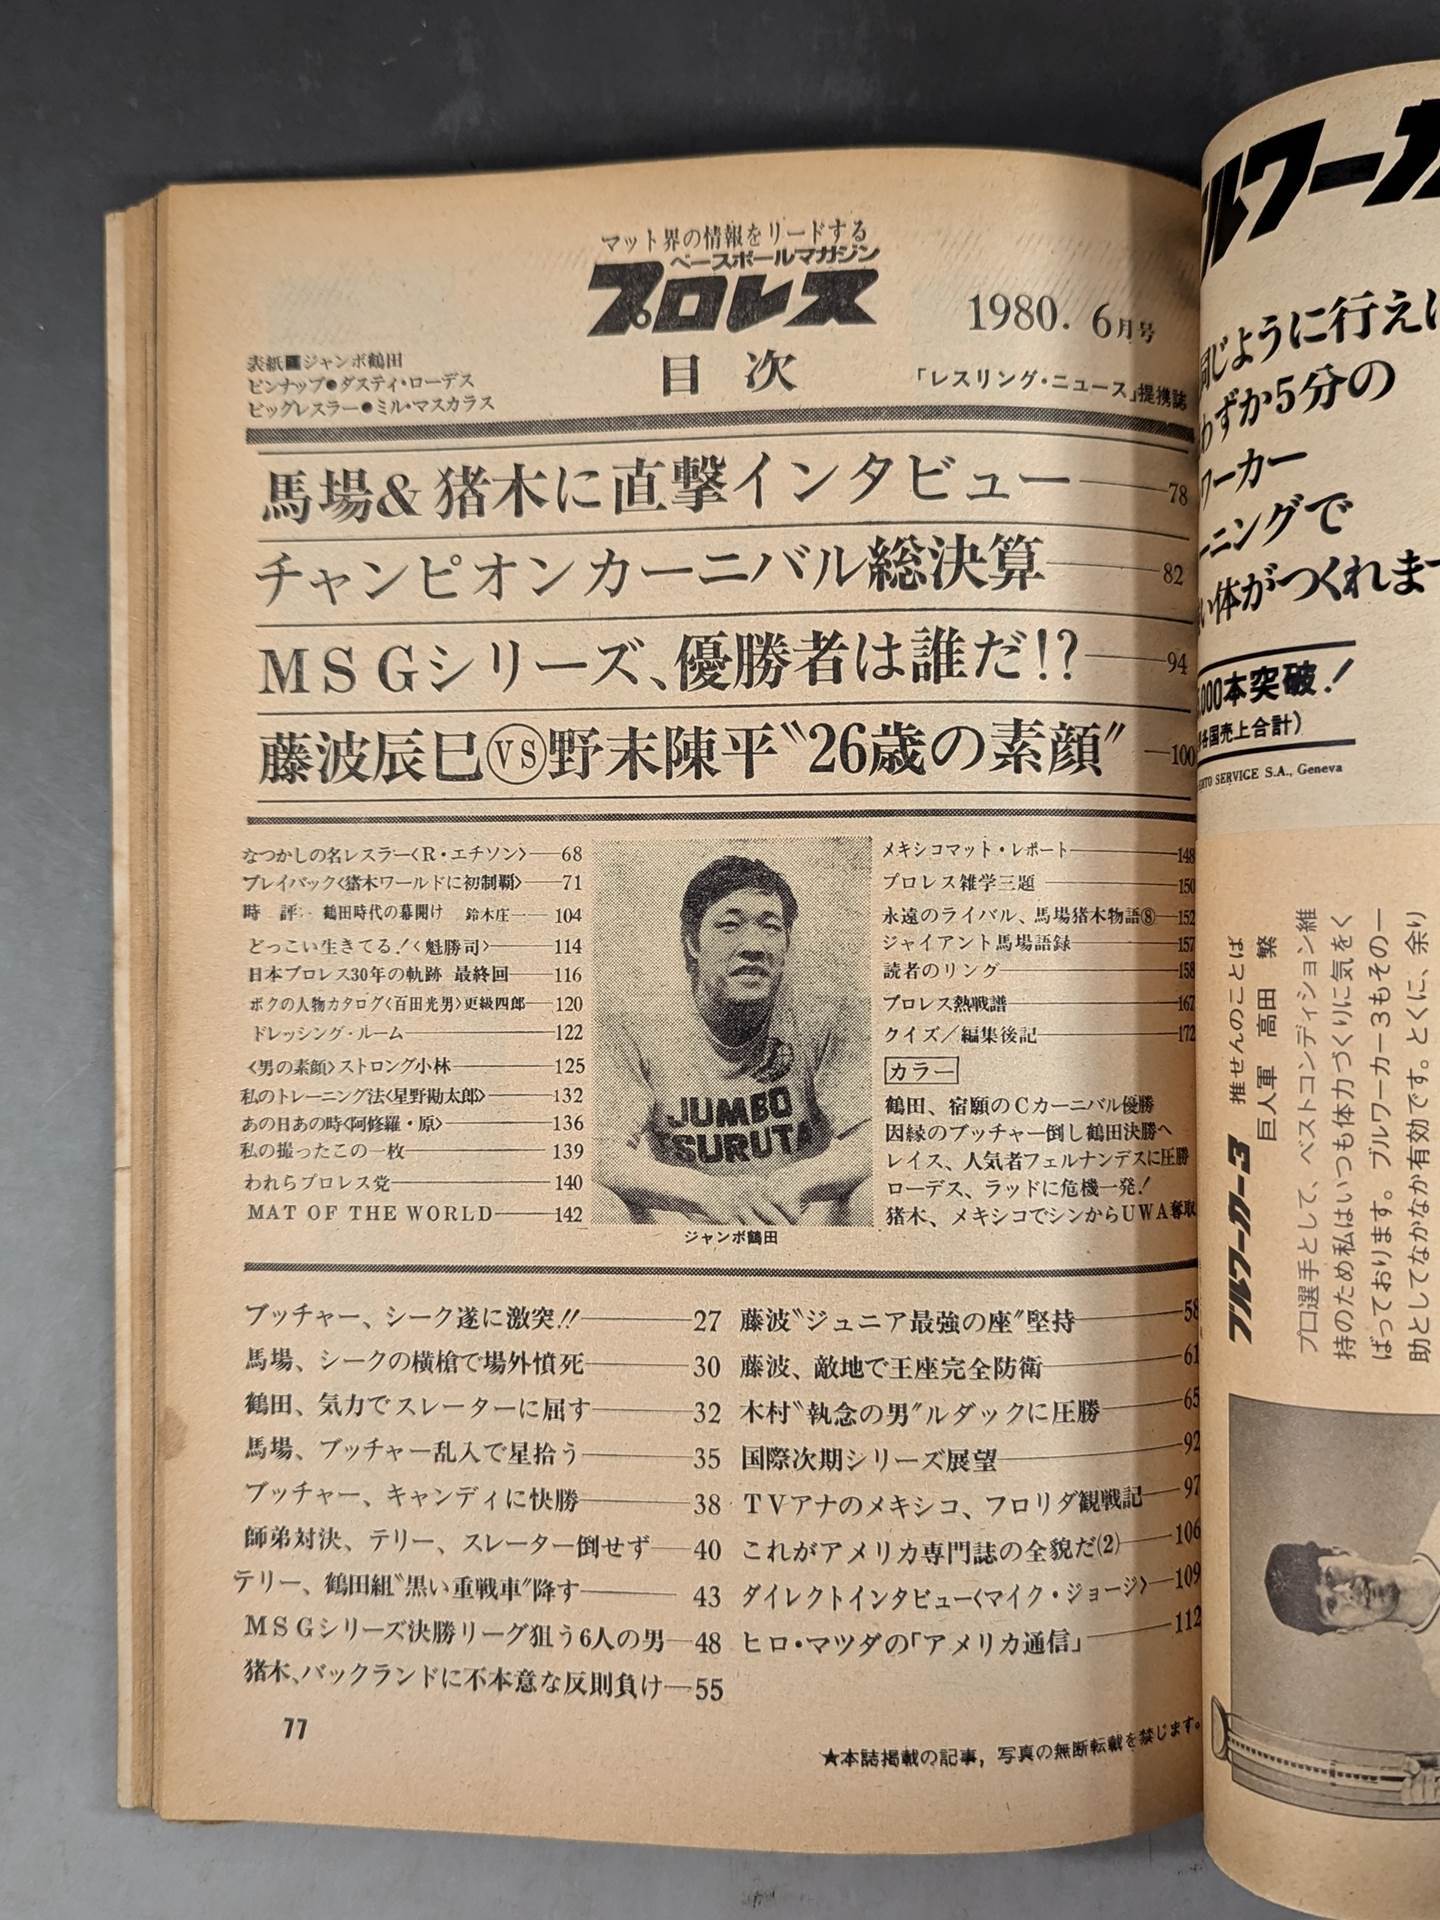 マット界の情報をリードする
ベースボールマガジン
プロレス
1980. 6月号
目次
「レスリング・ニュース」提携誌
表紙■ジャンボ鶴田
ピンナップ●ダスティ・ローデス
ビッグレスラー●ミル・マスカラス
馬場&猪木に直撃インタビュー――78
チャンピオンカーニバル総決算――82
MSGシリーズ、優勝者は誰だ!?――94
藤波辰巳VS野末陳平〝26歳の素顔〟―100
なつかしの名レスラー〈R・エチソン〉――68
プレイバック〈猪木ワールドに初制覇〉――71
時評 鶴田時代の幕開け 鈴木庄一――104
どっこい生きてる!〈魁勝司〉――114
日本プロレス30年の軌跡 最終回――116
ボクの人物カタログ〈百田光男〉更級四郎――120
ドレッシング・ルーム――122
〈男の素顔〉ストロング小林――125
私のトレーニング法〈星野勘太郎〉――132
あの日あの時〈阿修羅・原〉――136
私の撮ったこの一枚――139
われらプロレス党――140
MAT OF THE WORLD――142
JUMBO
TSURUTA
ジャンボ鶴田
メキシコマット・レポート――148
プロレス雑学三題――150
永遠のライバル、馬場猪木物語⑧―152
ジャイアント馬場語録――157
読者のリング――158
プロレス熱戦譜――167
クイズ/編集後記――172
カラー
鶴田、宿願のCカーニバル優勝
因縁のブッチャー倒し鶴田決勝へ
レイス、人気者フェルナンデスに圧勝
ローデス、ラッドに危機一発!
猪木、メキシコでシンからUWA奪取
ブッチャー、シーク遂に激突!!――27
馬場、シークの横槍で場外憤死――30
鶴田、気力でスレーターに屈す――32
馬場、ブッチャー乱入で星拾う――35
ブッチャー、キャンディに快勝――38
師弟対決、テリー、スレーター倒せず――40
テリー、鶴田組〝黒い重戦車〟降す――43
MSGシリーズ決勝リーグ狙う6人の男―48
猪木、バックランドに不本意な反則負け―55
藤波〝ジュニア最強の座〟堅持――58
藤波、敵地で王座完全防衛――61
木村〝執念の男〟ルダックに圧勝――65
国際次期シリーズ展望――92
TVアナのメキシコ、フロリダ観戦記―97
これがアメリカ専門誌の全貌だ(2)―106
ダイレクトインタビュー〈マイク・ジョージ〉―109
ヒロ・マツダの「アメリカ通信」――112
77
★本誌掲載の記事, 写真の無断転載を禁じます。
ルワーカ
同じように行えば
わずか5分の
ワーカー
ーニングで
い体がつくれます
000本突破!
各国売上合計)
SERVICE S.A., Geneva
ブルワーカー3
推せんのことば
巨人軍 高田 繁
プロ選手として、ベストコンディション維
持のため私はいつも体力づくりに気をく
ばっております。ブルワーカー3もその一
助としてなかなか有効です。とくに、余り